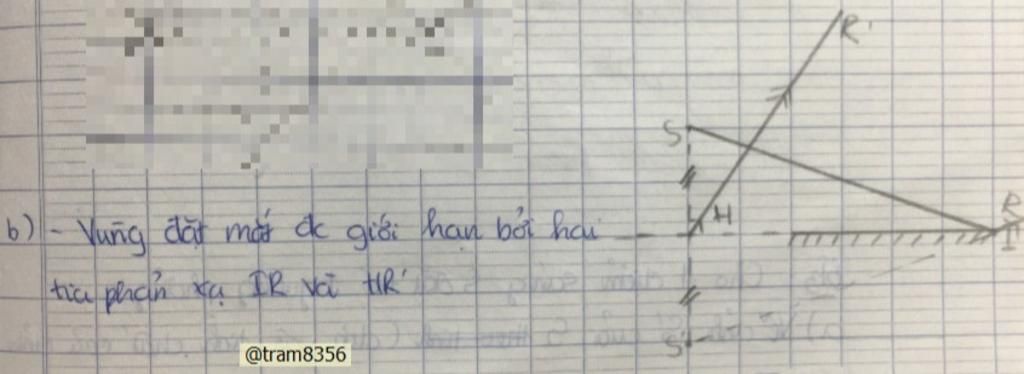 R'
S
H
R
I
b) - Vùng đặt mắt đc giới hạn bởi hai
tia phản xạ IR và HR'
S'
@tram8356